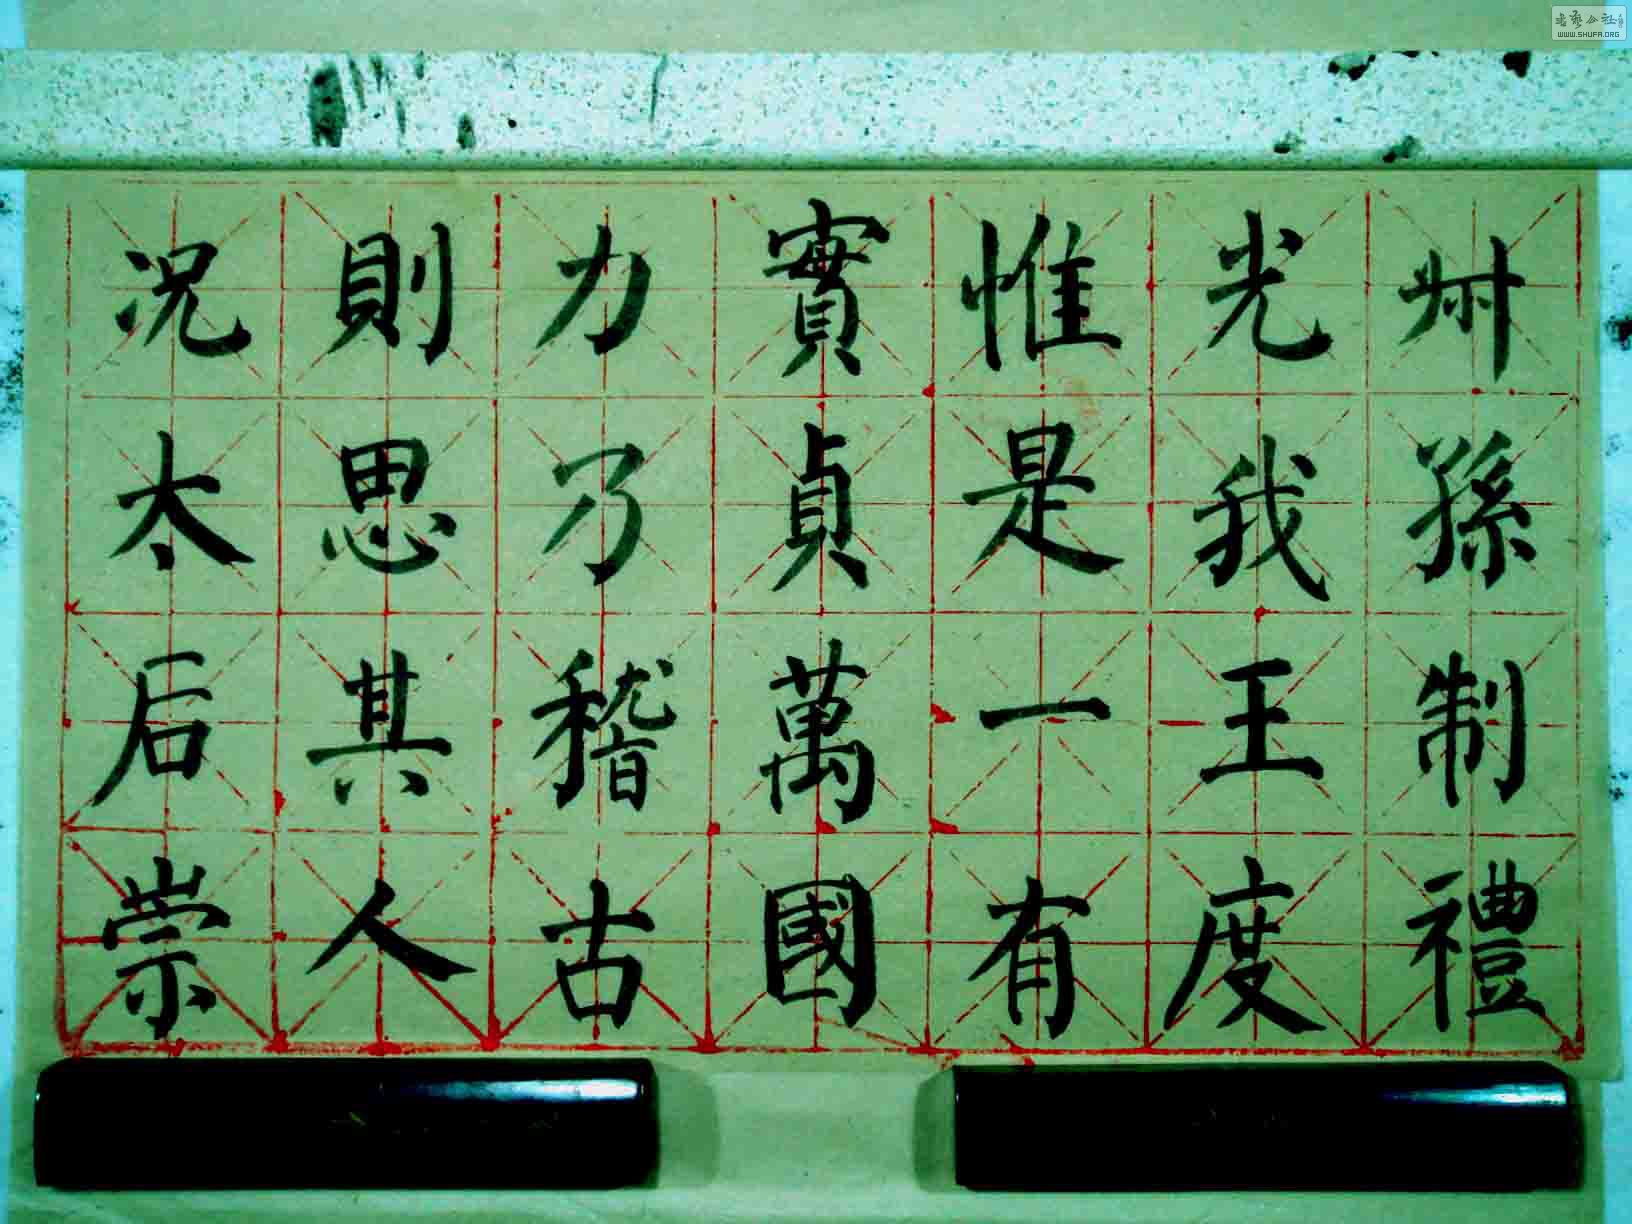 叔孫制禮
光我王度
惟是一有
實貞萬國
力乃稽古
則思其人
況太后崇
WWW.SHUFA.ORG